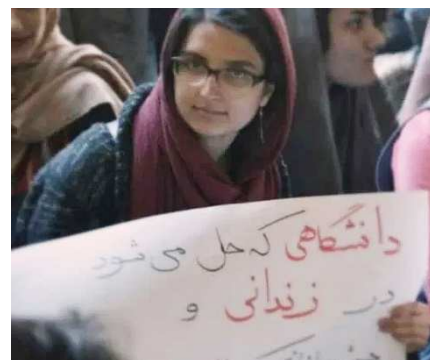 دانشگاهی که حل می شود
در زندانی و